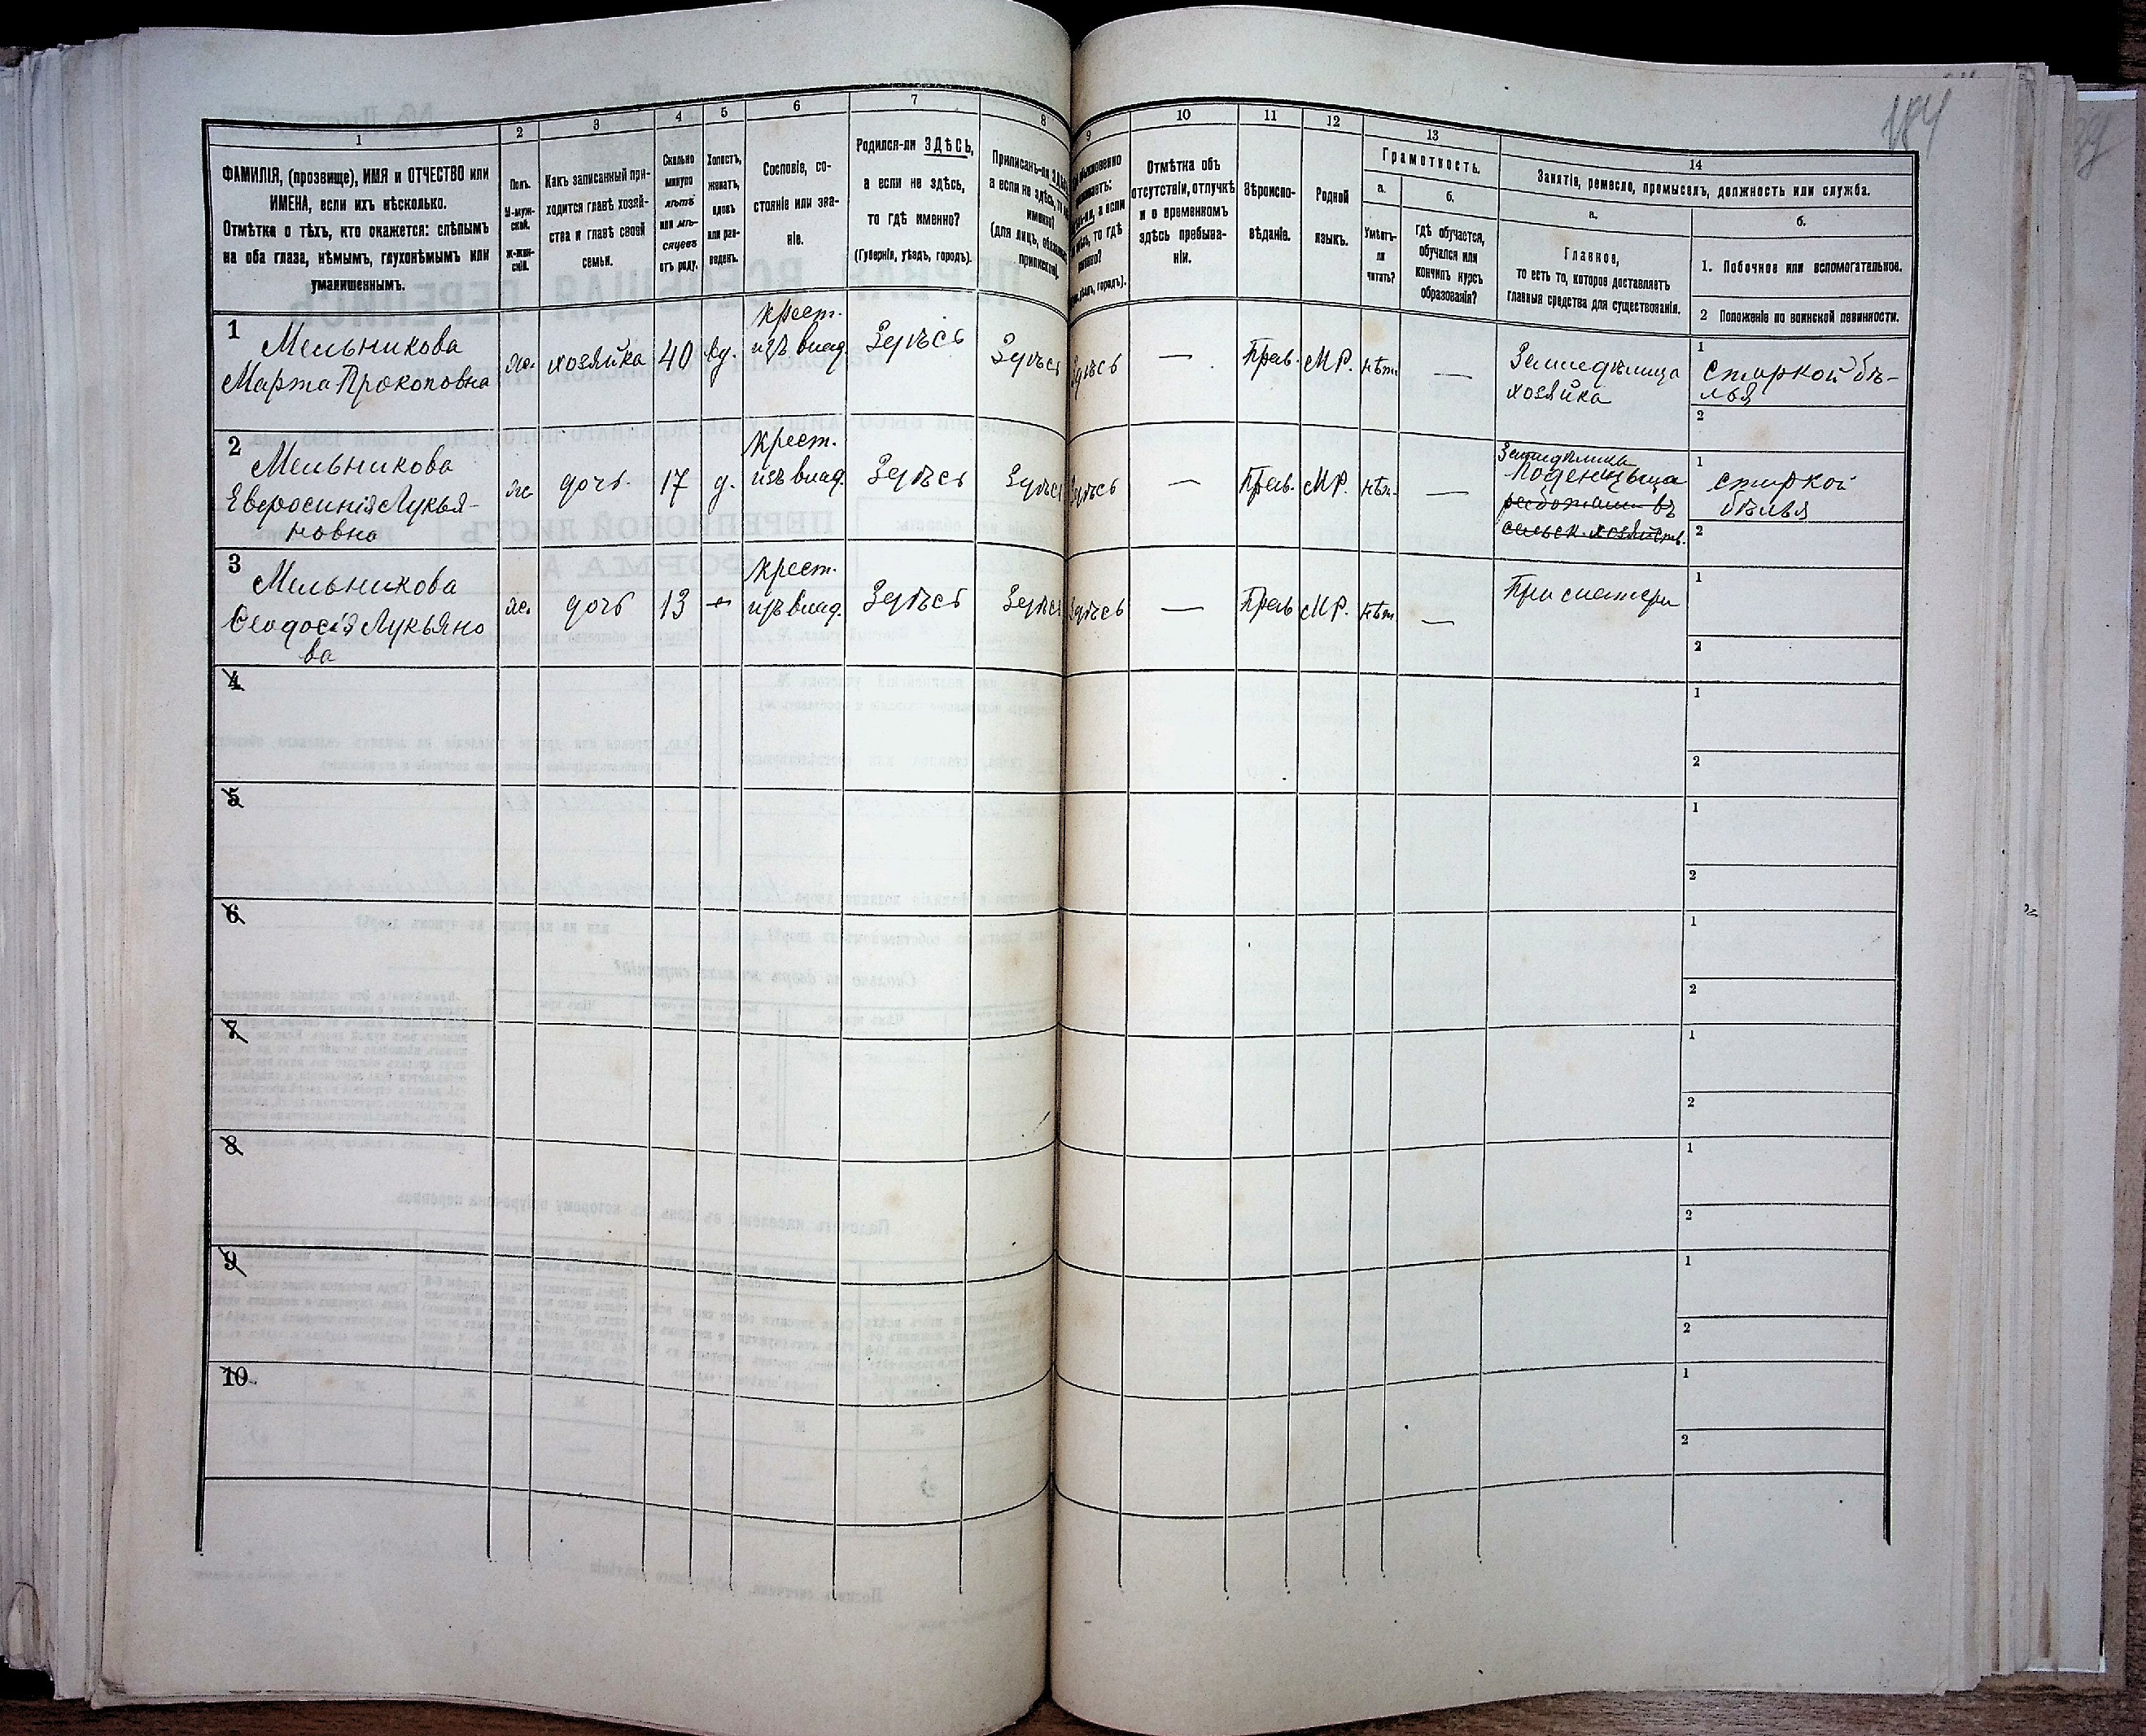 184
1
2
3
4
5
6
7
8
9
10
11
12
13
14
ФАМИЛІЯ, (прозвище), ИМЯ и ОТЧЕСТВО или
ИМЕНА, если ихъ нѣсколько.
Отмѣтка о тѣхъ, кто окажется: слѣпымъ
на оба глаза, нѣмымъ, глухонѣмымъ или
умалишеннымъ.
Полъ.
М-муж-
ской.
Ж-жен-
скій.
Какъ записанный при-
ходится главѣ хозяй-
ства и главѣ своей
семьи.
Сколько
минуло
лѣтъ
или мѣ-
сяцевъ
отъ роду.
Холостъ,
женатъ,
вдовъ
или раз-
веденъ.
Сословіе, со-
стояніе или зва-
ніе.
Родился-ли ЗДѢСЬ,
а если не здѣсь,
то гдѣ именно?
(Губернія, уѣздъ, городъ).
Приписанъ-ли
а если не здѣсь,
(для лицъ,
Отмѣтка объ
отсутствіи, отлучкѣ
и о временномъ
здѣсь пребыва-
ніи.
Вѣроиспо-
вѣданіе.
Родной
языкъ.
Грамотность.
а.
Умѣетъ-
ли
читать?
б.
гдѣ обучается,
обучался или
кончилъ курсъ
образованія?
Занятіе, ремесло, промыселъ, должность или служба.
а.
Главное,
то есть то, которое доставляетъ
главныя средства для существованія.
б.
1. Побочное или вспомогательное.
2 Положеніе по воинской повинности.
1
Мельникова
Марта Прокоповна
ж.
хозяйка
40
вд.
крест.
изъ влад.
Здѣсь
Здѣсь
Здѣсь
—
Прав.
МР.
нѣт
—
Земледѣлица
хозяйка
1
стиркой бѣ-
лья
2
2
Мельникова
Евросинія Лукья-
новна
ж
дочь.
17
д.
крест.
изъ влад.
Здѣсь
Здѣсь
Здѣсь
—
Прав.
МР.
нѣт.
—
Земледѣлица
Поденьщица
работами въ
сельск. хозяйств.
1
стиркой
бѣлья
2
3
Мельникова
Ѳеодосія Лукьяно
ва
ж.
дочь
13
—
крест.
изъ влад.
Здѣсь
Здѣсь
Здѣсь
—
Прав
МР.
нѣт
—
При матери
1
2
4
1
2
5
1
2
6
1
2
7
1
2
8
1
2
9
1
2
10
1
2